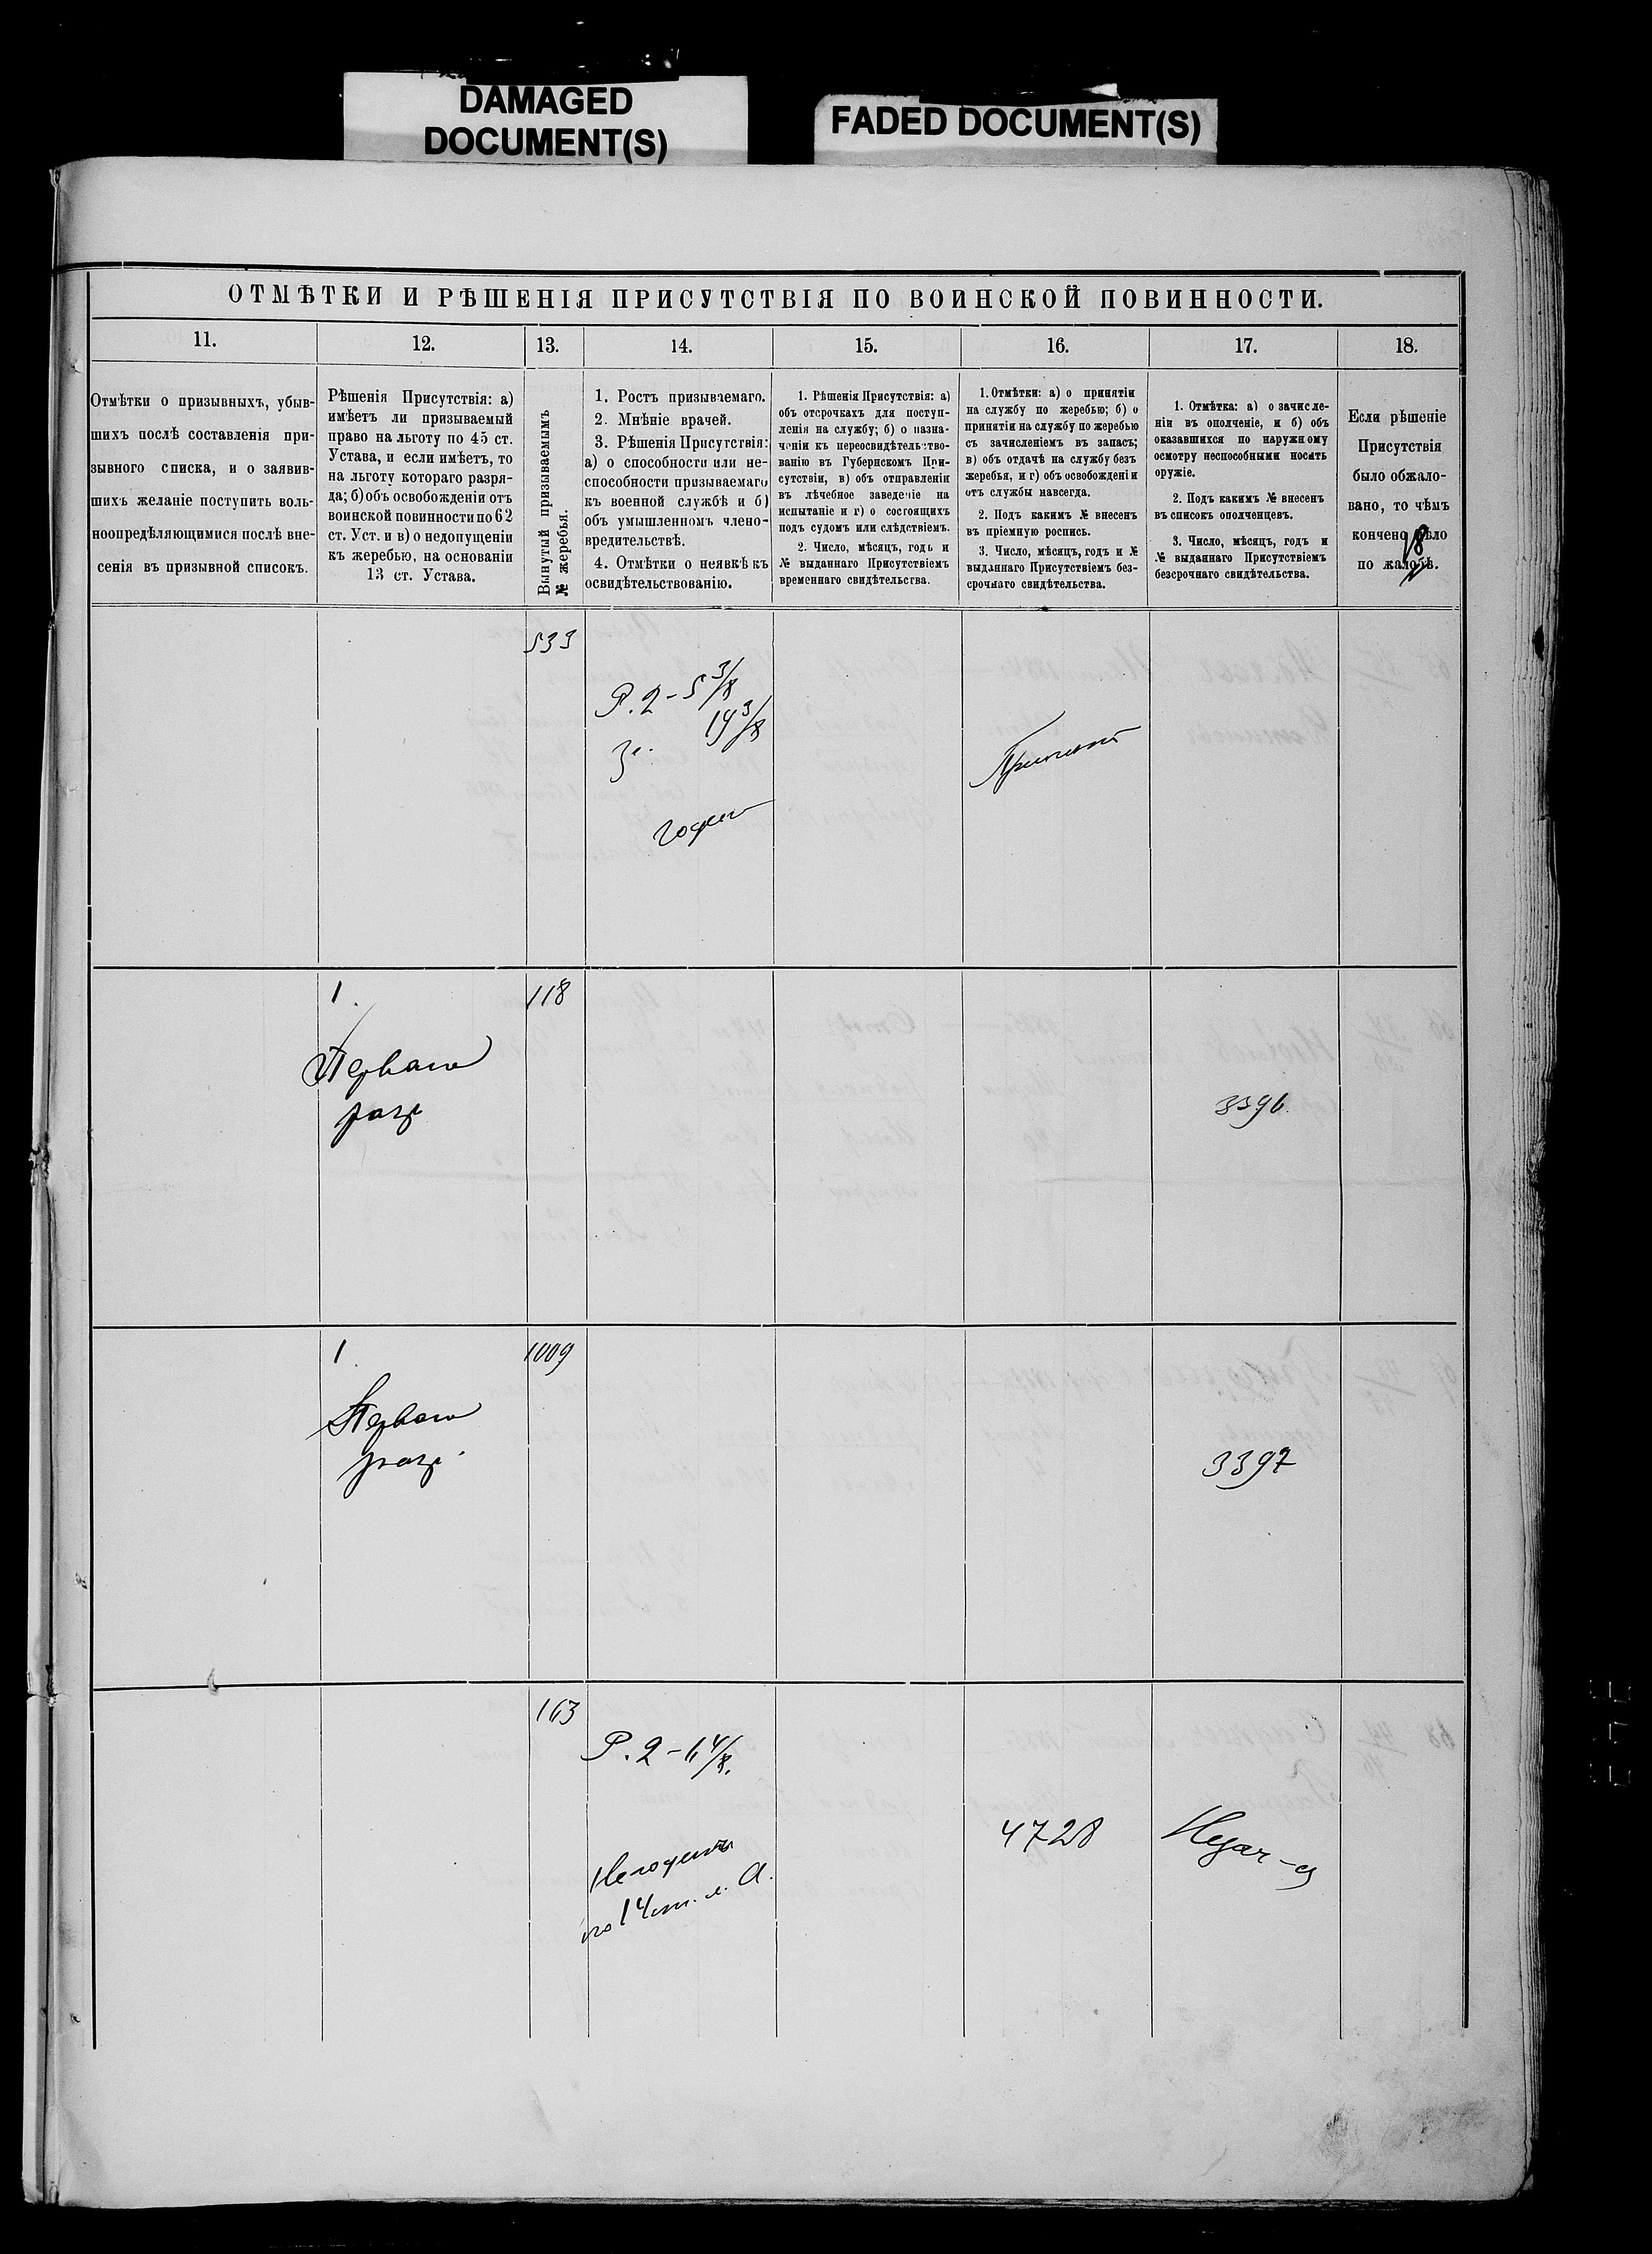 DAMAGED
DOCUMENT(S)
FADED DOCUMENT(S)
ОТМѢТКИ И РѢШЕНІЯ ПРИСУТСТВІЯ ПО ВОИНСКОЙ ПОВИННОСТИ.
11.
12.
13.
14.
15.
16.
17.
18.
Отмѣтки о призывныхъ, убыв-
шихъ послѣ составленія при-
зывного списка, и о заявив-
шихъ желаніе поступить воль-
ноопредѣляющимися послѣ вне-
сенія въ призывной списокъ.
Рѣшенія Присутствія: а)
имѣетъ ли призываемый
право на льготу по 45 ст.
Устава, и если имѣетъ, то
на льготу котораго разря-
да; б) объ освобожденіи отъ
воинской повинности по 62
ст. Уст. и в) о недопущеніи
къ жеребью, на основаніи
13 ст. Устава.
Вынутый призываемымъ
№ жеребья.
1. Ростъ призываемаго.
2. Мнѣніе врачей.
3. Рѣшенія Присутствія:
а) о способности или не-
способности призываемаго
къ военной службѣ и б)
объ умышленномъ члено-
вредительствѣ.
4. Отмѣтки о неявкѣ къ
освидѣтельствованію.
1. Рѣшенія Присутствія: а)
объ отсрочкахъ для поступ-
ленія на службу; б) о назна-
ченіи къ переосвидѣтельство-
ванію въ Губернскомъ При-
сутствіи, в) объ отправленіи
въ лѣчебное заведеніе на
испытаніе и г) о состоящихъ
подъ судомъ или слѣдствіемъ.
2. Число, мѣсяцъ, годъ и
№ выданнаго Присутствіемъ
временнаго свидѣтельства.
1. Отмѣтки: а) о принятіи
на службу по жеребью; б) о
принятіи на службу по жеребью
съ зачисленіемъ въ запасъ;
в) объ отдачѣ на службу безъ
жеребья, и г) объ освобожденіи
отъ службы навсегда.
2. Подъ какимъ № внесенъ
въ пріемную роспись.
3. Число, мѣсяцъ, годъ и №
выданнаго Присутствіемъ без-
срочнаго свидѣтельства.
1. Отмѣтка: а) о зачисле-
ніи въ ополченіе, и б) объ
оказавшихся по наружному
осмотру неспособными носить
оружіе.
2. Подъ какимъ № внесенъ
въ списокъ ополченцевъ.
3. Число, мѣсяцъ, годъ и
№ выданнаго Присутствіемъ
безсрочнаго свидѣтельства.
Если рѣшеніе
Присутствія
было обжало-
вано, то чѣмъ
кончено дѣло
по жалобѣ.
18
533
Р. 2 - 5 3/8
19 3/8
годен
Принят
1
118
Перваго
разр
3396.
1
1009
Перваго
разр.
3397
163
Р. 2 - 6 4/8.
Негоденъ
по 14 ст. л. А.
4728